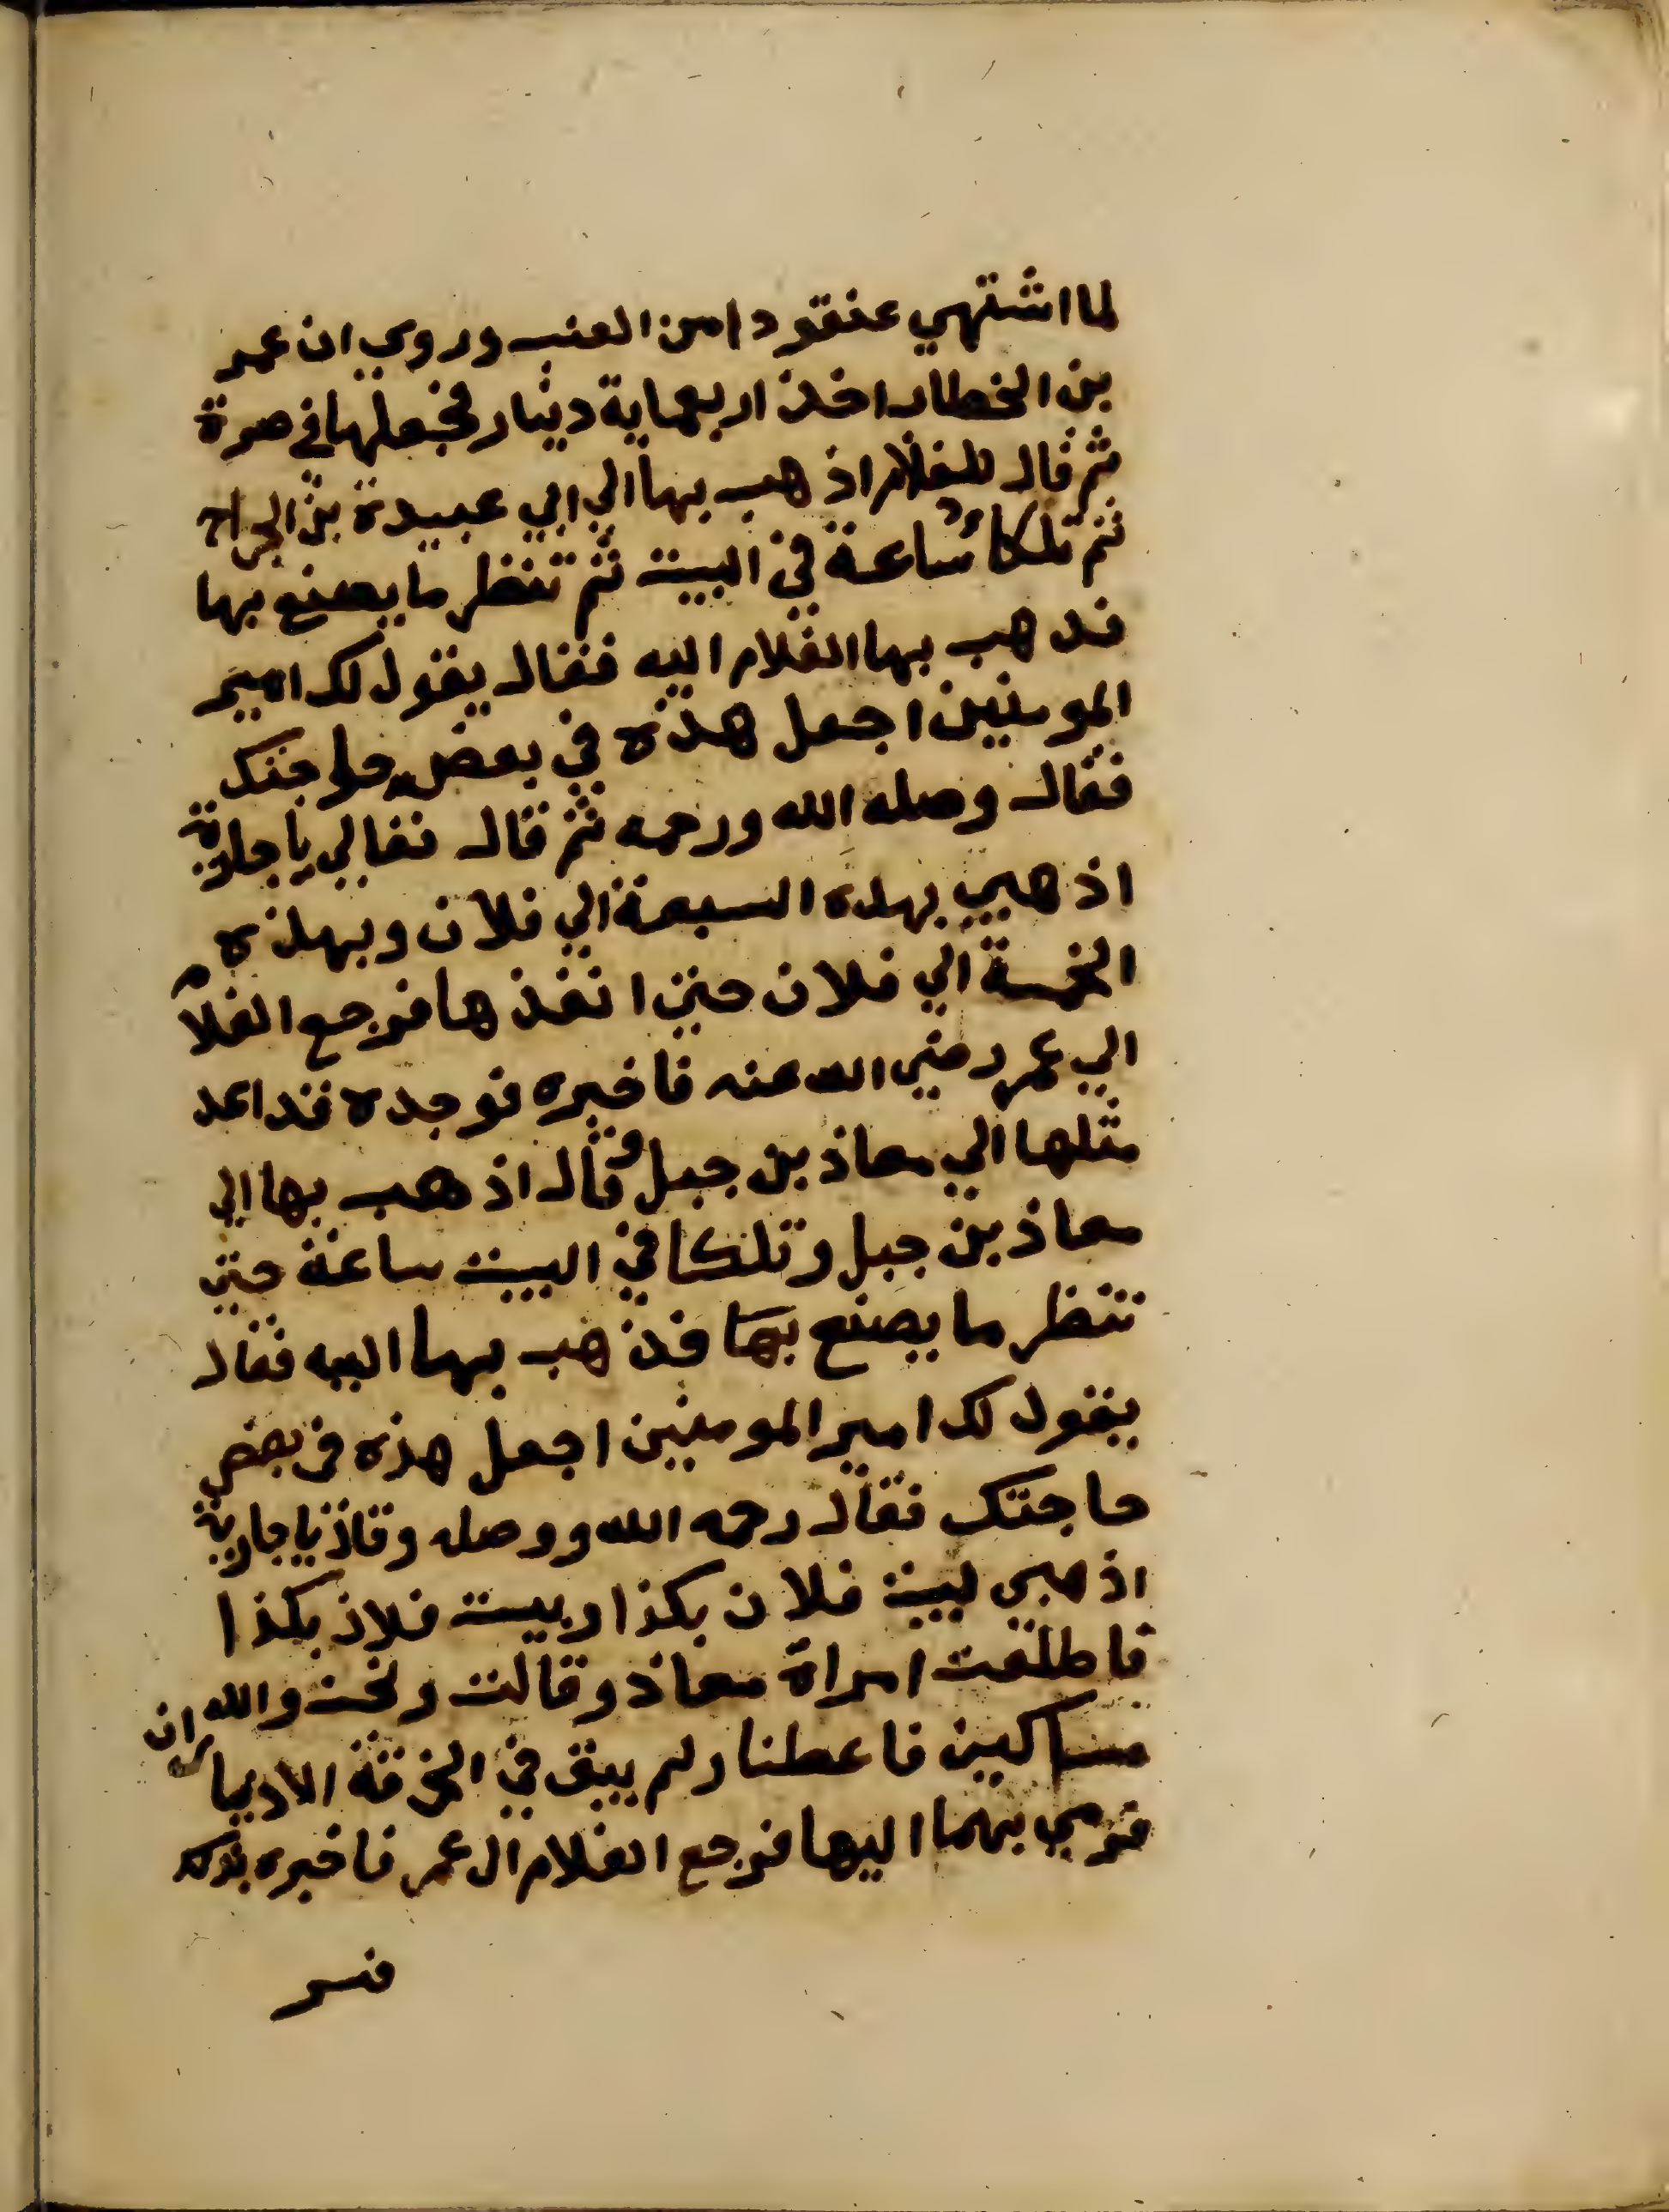 لما اشتهي عنقودا من العنب وروي ان عمر
بن الخطاب اخذ اربعماية دينار فجعلها في صرة
ثم قال للغلام اذهب بها الي ابي عبيدة بن الجراح
ثم تلكا ساعة في البيت ثم تنظر ما يصنع بها
فذهب بها الغلام اليه فقال يقول لك امير
المومنين اجعل هذه في بعض حوايجك
فقال وصله الله ورحمه ثم قال تعالي يا جارية
اذهبي بهذه السبعة الي فلان وبهذه
الخمسة الي فلان حتي انفذها فرجع الغلام
الي عمر رضي الله عنه فاخبره فوجده قد اعد
مثلها الي معاذ بن جبل وقال اذهب بها الي
معاذ بن جبل وتلكا في البيت ساعة حتي
تنظر ما يصنع بها فذهب بها اليه فقال
يقول لك امير المومنين اجعل هذه في بعض
حاجتك فقال رحمه الله ووصله وقال يا جارية
اذهبي لبيت فلان بكذا وبيت فلان بكذا
فاطلعت امراة معاذ وقالت ونحن والله
مساكين فاعطنا ولم يبق في الخرقة الا ديناران
فرمي بهما اليها فرجع الغلام الي عمر فاخبره بذلك
فسر